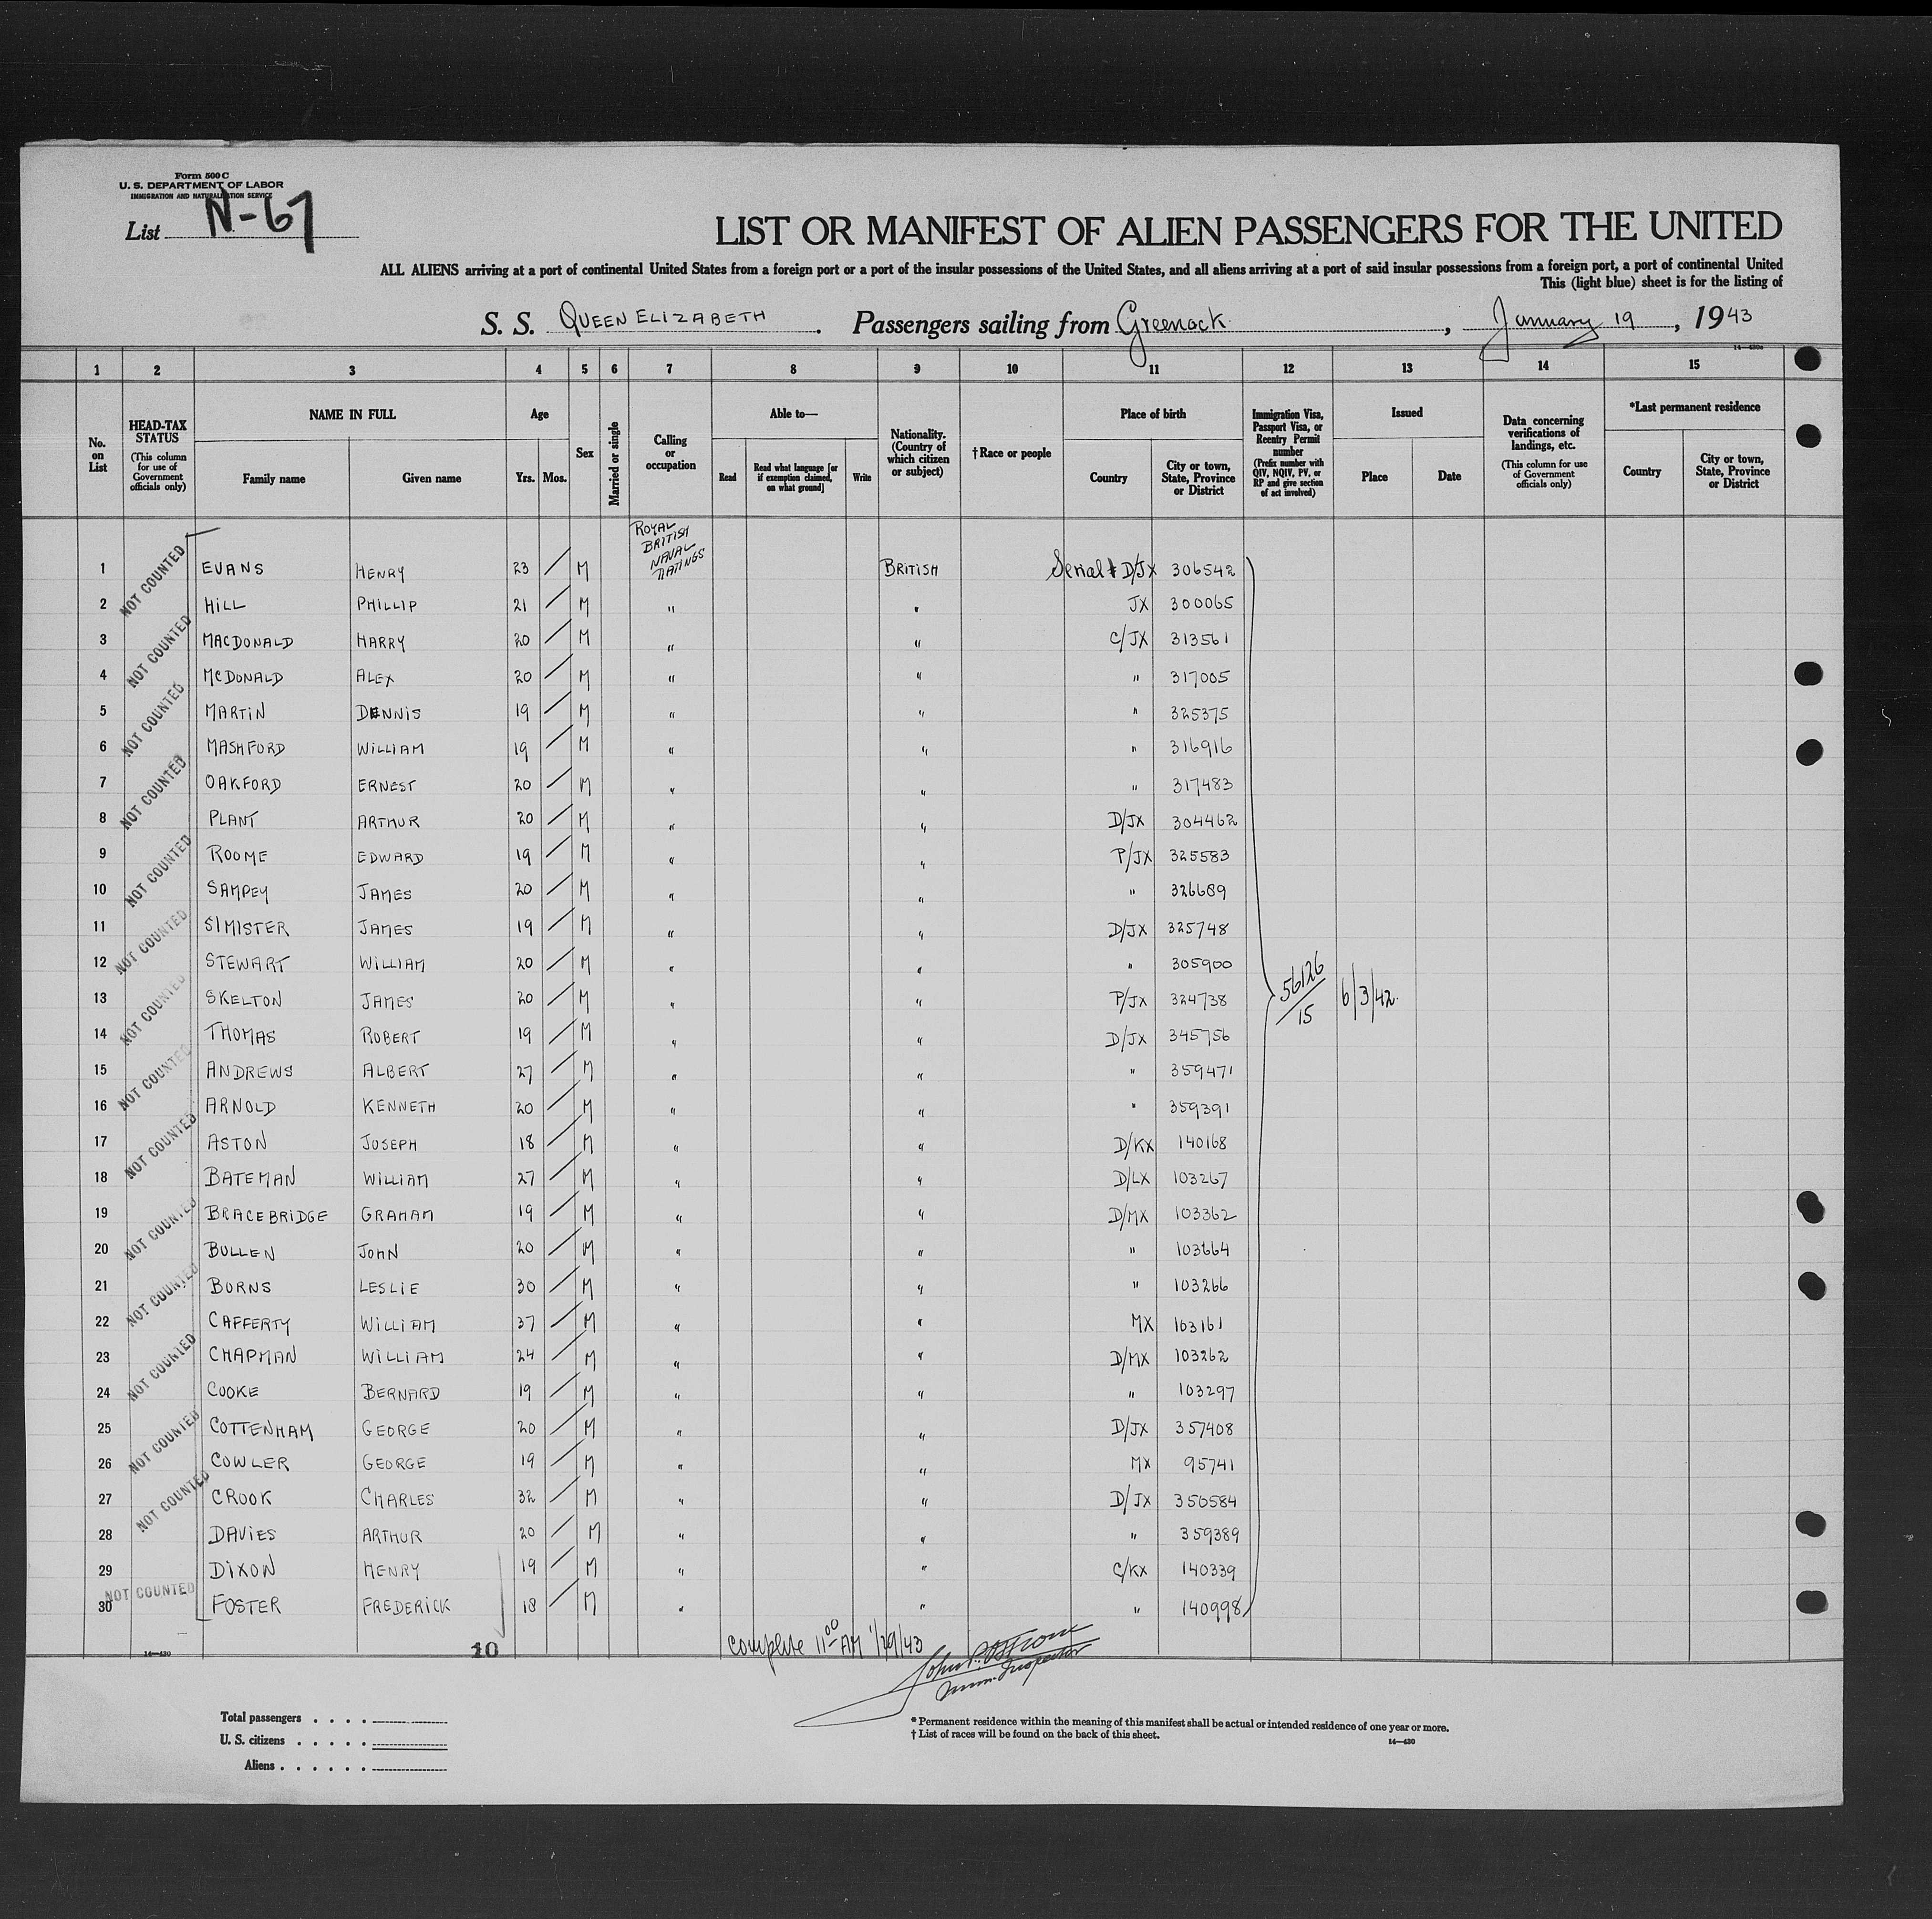 Form 500 C
U. S. DEPARTMENT OF LABOR
IMMIGRATION AND NATURALIZATION SERVICE
List N-67
LIST OR MANIFEST OF ALIEN PASSENGERS FOR THE UNITED
ALL ALIENS arriving at a port of continental United States from a foreign port or a port of the insular possessions of the United States, and all aliens arriving at a port of said insular possessions from a foreign port, a port of continental United
This (light blue) sheet is for the listing of
S. S. QUEEN ELIZABETH. Passengers sailing from Greenock, January 19, 1943
1 2 3 4 5 6 7 8 9 10 11 12 13 14 15
No. on List
HEAD-TAX STATUS (This column for use of Government officials only)
NAME IN FULL Family name Given name
Age Yrs. Mos.
Sex
Married or single
Calling or occupation
Able to— Read Read what language [or if exemption claimed, on what ground] Write
Nationality. (Country of which citizen or subject)
† Race or people
Place of birth Country City or town, State, Province or District
Immigration Visa, Passport Visa, or Reentry Permit number (Prefix number with QIV, NQIV, PV, or RP and give section of act involved)
Issued Place Date
Data concerning verifications of landings, etc. (This column for use of Government officials only)
*Last permanent residence Country City or town, State, Province or District
ROYAL BRITISH NAVAL RATINGS
1 NOT COUNTED EVANS HENRY 23 M BRITISH Serial # D/JX 306542
2 HILL PHILLIP 21 M " " JX 300065
3 NOT COUNTED MACDONALD HARRY 20 M " " C/JX 313561
4 MCDONALD ALEX 20 M " " " 317005
5 NOT COUNTED MARTIN DENNIS 19 M " " " 325375
6 MASHFORD WILLIAM 19 M " " " 316916
7 NOT COUNTED OAKFORD ERNEST 20 M " " " 317483
8 PLANT ARTHUR 20 M " " D/JX 304462
9 NOT COUNTED ROOME EDWARD 19 M " " P/JX 325583
10 SAMPEY JAMES 20 M " " " 326689
11 NOT COUNTED SIMISTER JAMES 19 M " " D/JX 325748
12 STEWART WILLIAM 20 M " " " 305900
13 NOT COUNTED SKELTON JAMES 20 M " " P/JX 324738 56126/15 6/3/42
14 THOMAS ROBERT 19 M " " D/JX 345756
15 NOT COUNTED ANDREWS ALBERT 27 M " " " 359471
16 ARNOLD KENNETH 20 M " " " 359391
17 NOT COUNTED ASTON JOSEPH 18 M " " D/KX 140168
18 BATEMAN WILLIAM 27 M " " D/LX 103267
19 NOT COUNTED BRACEBRIDGE GRAHAM 19 M " " D/MX 103362
20 BULLEN JOHN 20 M " " " 103664
21 NOT COUNTED BURNS LESLIE 30 M " " " 103266
22 CAFFERTY WILLIAM 37 M " " MX 103161
23 NOT COUNTED CHAPMAN WILLIAM 24 M " " D/MX 103262
24 COOKE BERNARD 19 M " " " 103297
25 NOT COUNTED COTTENHAM GEORGE 20 M " " D/JX 357408
26 COWLER GEORGE 19 M " " MX 95741
27 NOT COUNTED CROOK CHARLES 32 M " " D/JX 350584
28 DAVIES ARTHUR 20 M " " " 359389
29 DIXON HENRY 19 M " " C/KX 140339
30 NOT COUNTED FOSTER FREDERICK 18 M " " " 140998
14—430 10 Complete 11 00 AM 1/29/43
Imm. Inspector
Total passengers
U. S. citizens
Aliens
* Permanent residence within the meaning of this manifest shall be actual or intended residence of one year or more.
† List of races will be found on the back of this sheet.
14—430